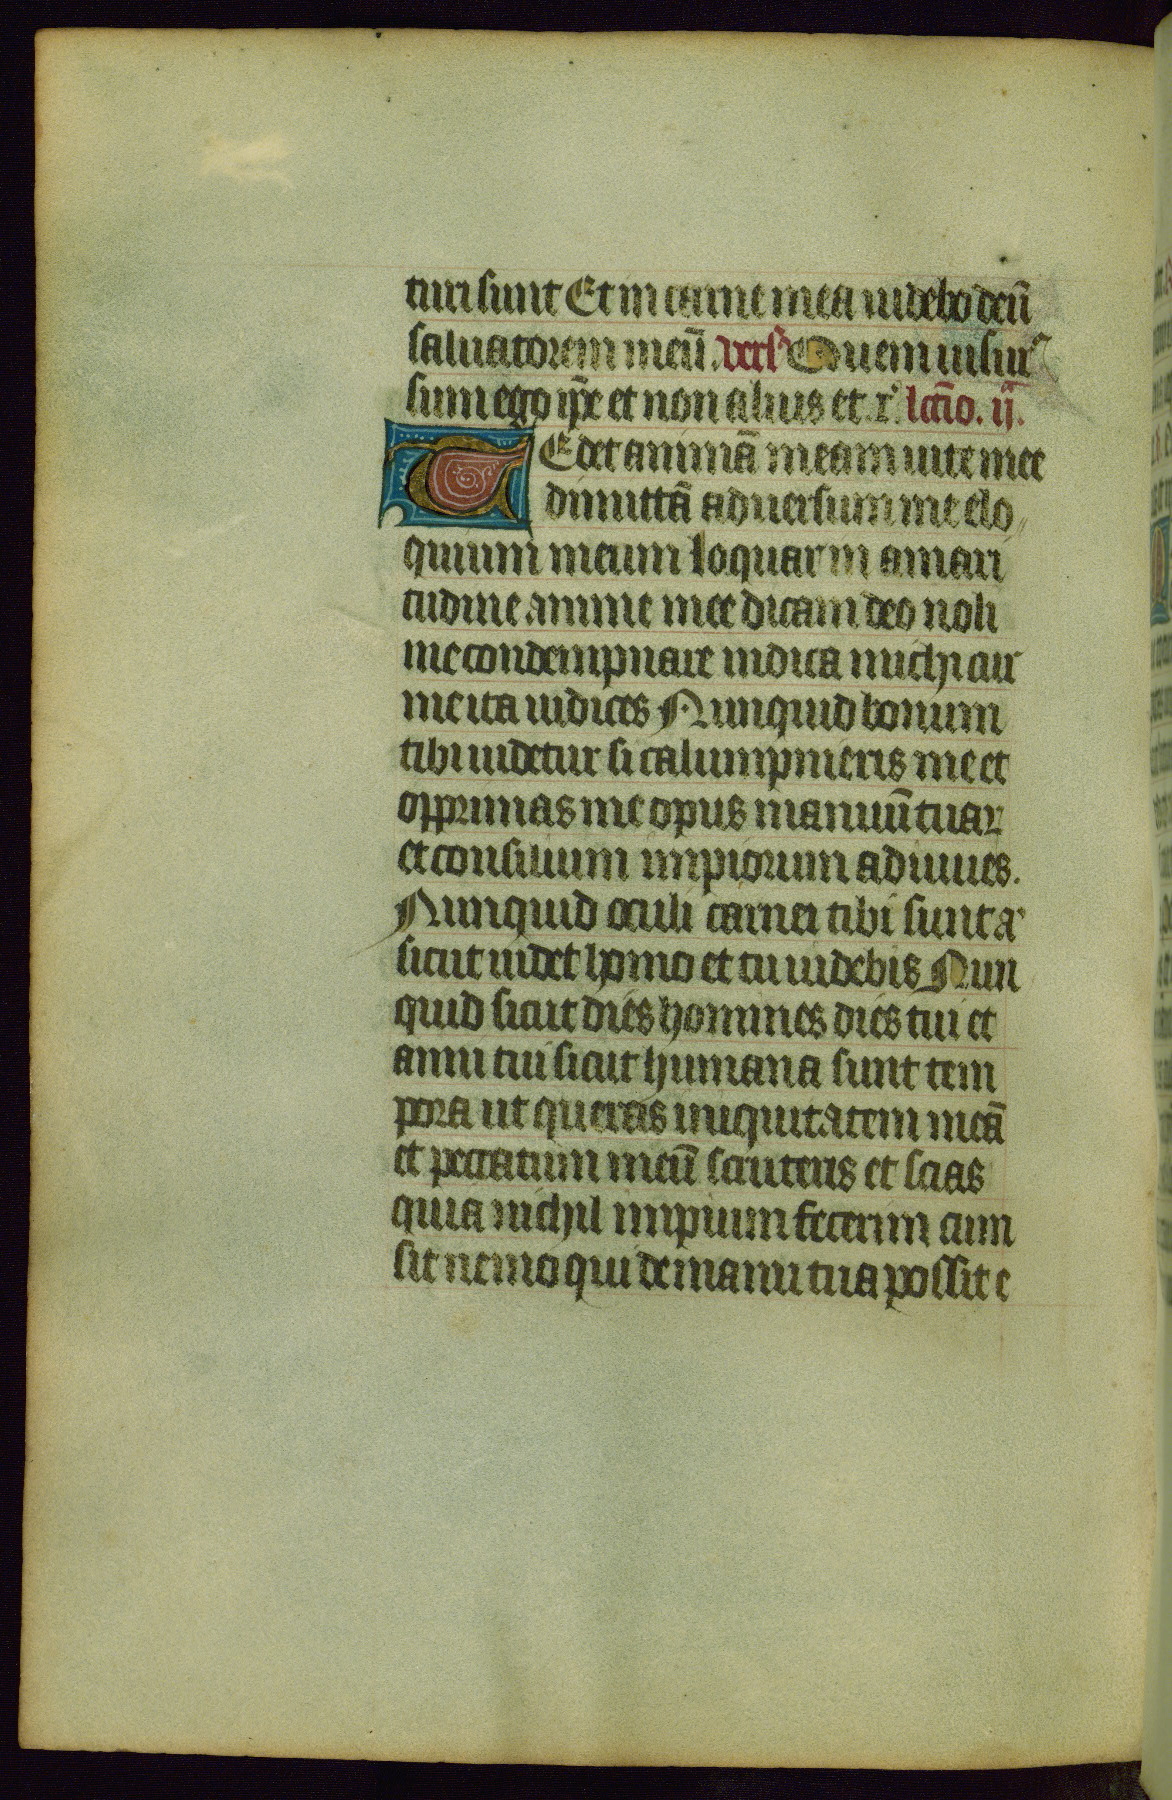 turi sunt Et in carne mea uidebo deū
saluatorem meū. vers Quem uisur
sum ego ip̄e et non alius et. r. lcc̄io. ij.
TEdet animā meam uite mee
dimittā aduersum me elo
quium meum loquar in amari
tudine anime mee dicam deo noli
me condempnare indica michi cur
me ita iudices Nunquid bonum
tibi uidetur si calumpnieris me et
opprimas me opus manuū tuar
et consilium impiorum adiuues.
Nunquid oculi carnei tibi sunt a
sicut uidet homo et tu uidebis Nun
quid sicut dies hominies dies tui et
anni tui sicut humana sunt tem
pora ut queras iniquitatem meā
et peccatum meū scruteris et scias
quia nichil impium fecerim cum
sit nemo qui de manu tua possit e